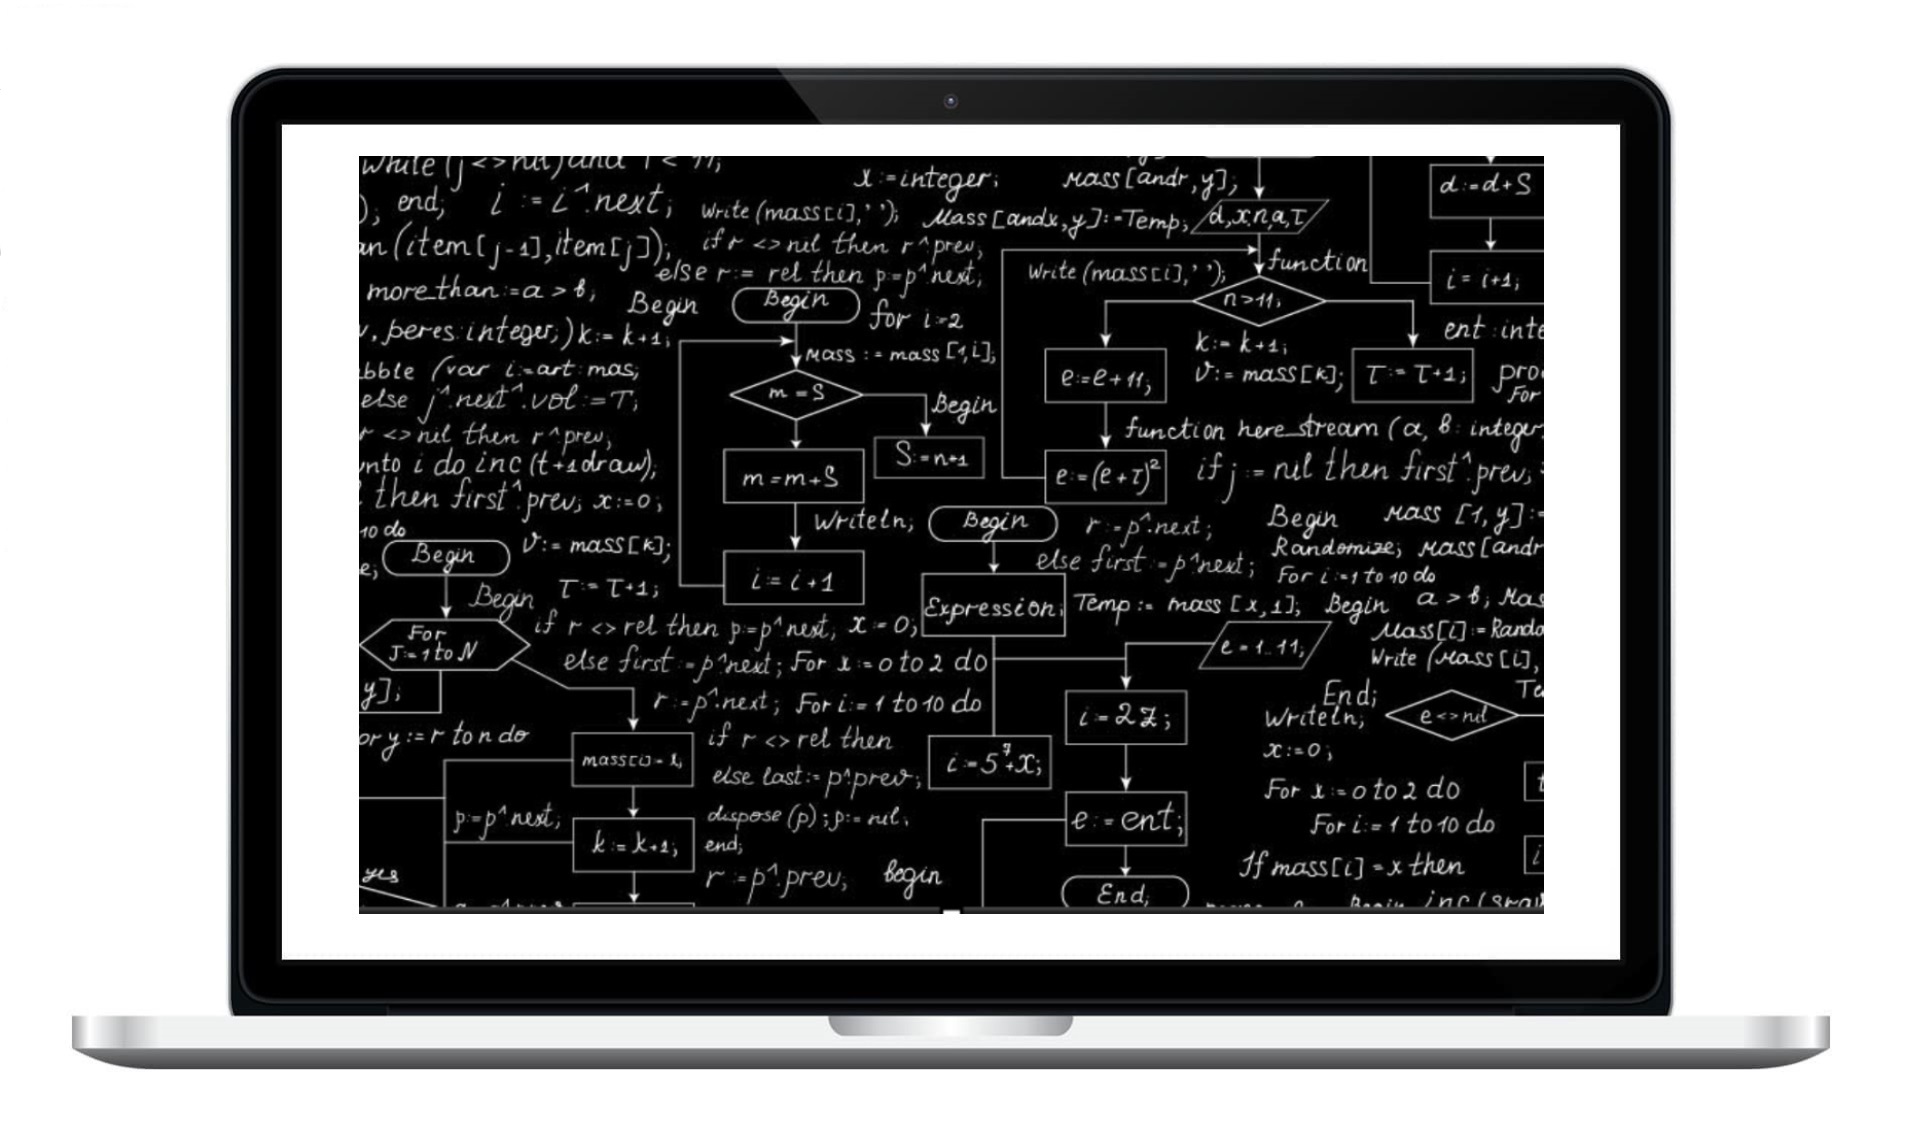 while (j <> nil) and i < 11;
), end; i := i^.next;
x := integer;
mass [andr, y];
d := d + S
write (mass[i], ' ');
mass [andx, y] := Temp;
d, x, n, a, τ
an (item [j-1], item [j]);
if r <> nil then r^prev;
function
else r := rel then p := p^.next;
write (mass[i], ' ');
i = i+1;
more_than := a > b;
Begin
Begin
for i := 2
n > 11;
v, peres : integer; ) k := k+1;
ent : inte
mass := mass [1, i];
k := k+1;
bble (var i := art : mas;
m = S
e := e + 11;
v := mass [k];
τ := τ+1;
pro
For
else j^.next^.vol := T;
Begin
r <> nil then r^prev;
S := n+1
function here_stream (a, b : integer
nto i do inc (t+1 draw);
m = m + S
e := (e + τ)²
if j := nil then first^.prev;
then first^.prev; x := 0;
Writeln;
Begin
r := p^.next;
Begin
mass [1, y] :=
10 do
e;
Begin
v := mass [k];
else first := p^next;
Randomize; mass [andr
i := i + 1
For i := 1 to 10 do
Begin
τ := τ+1;
Expression;
Temp := mass [x, 1]; Begin
a > b; Mas
For
J := 1 to N
if r <> rel then p := p^.next; x := 0;
e = 1..11;
Mass[i] := Rando
Write (mass [i],
else first := p^next; For x := 0 to 2 do
y];
r := p^.next; For i := 1 to 10 do
i := 2z;
End;
Te
Writeln;
e <> nil
or y := r to n do
if r <> rel then
x := 0;
else last := p^prev;
i := 5⁷ + x;
For x := 0 to 2 do
p := p^.next;
dispose (p); p := nil;
e := ent;
For i := 1 to 10 do
k := k+1;
end;
If mass[i] = x then
yes
r := p^.prev;
begin
End;
Begin inc (